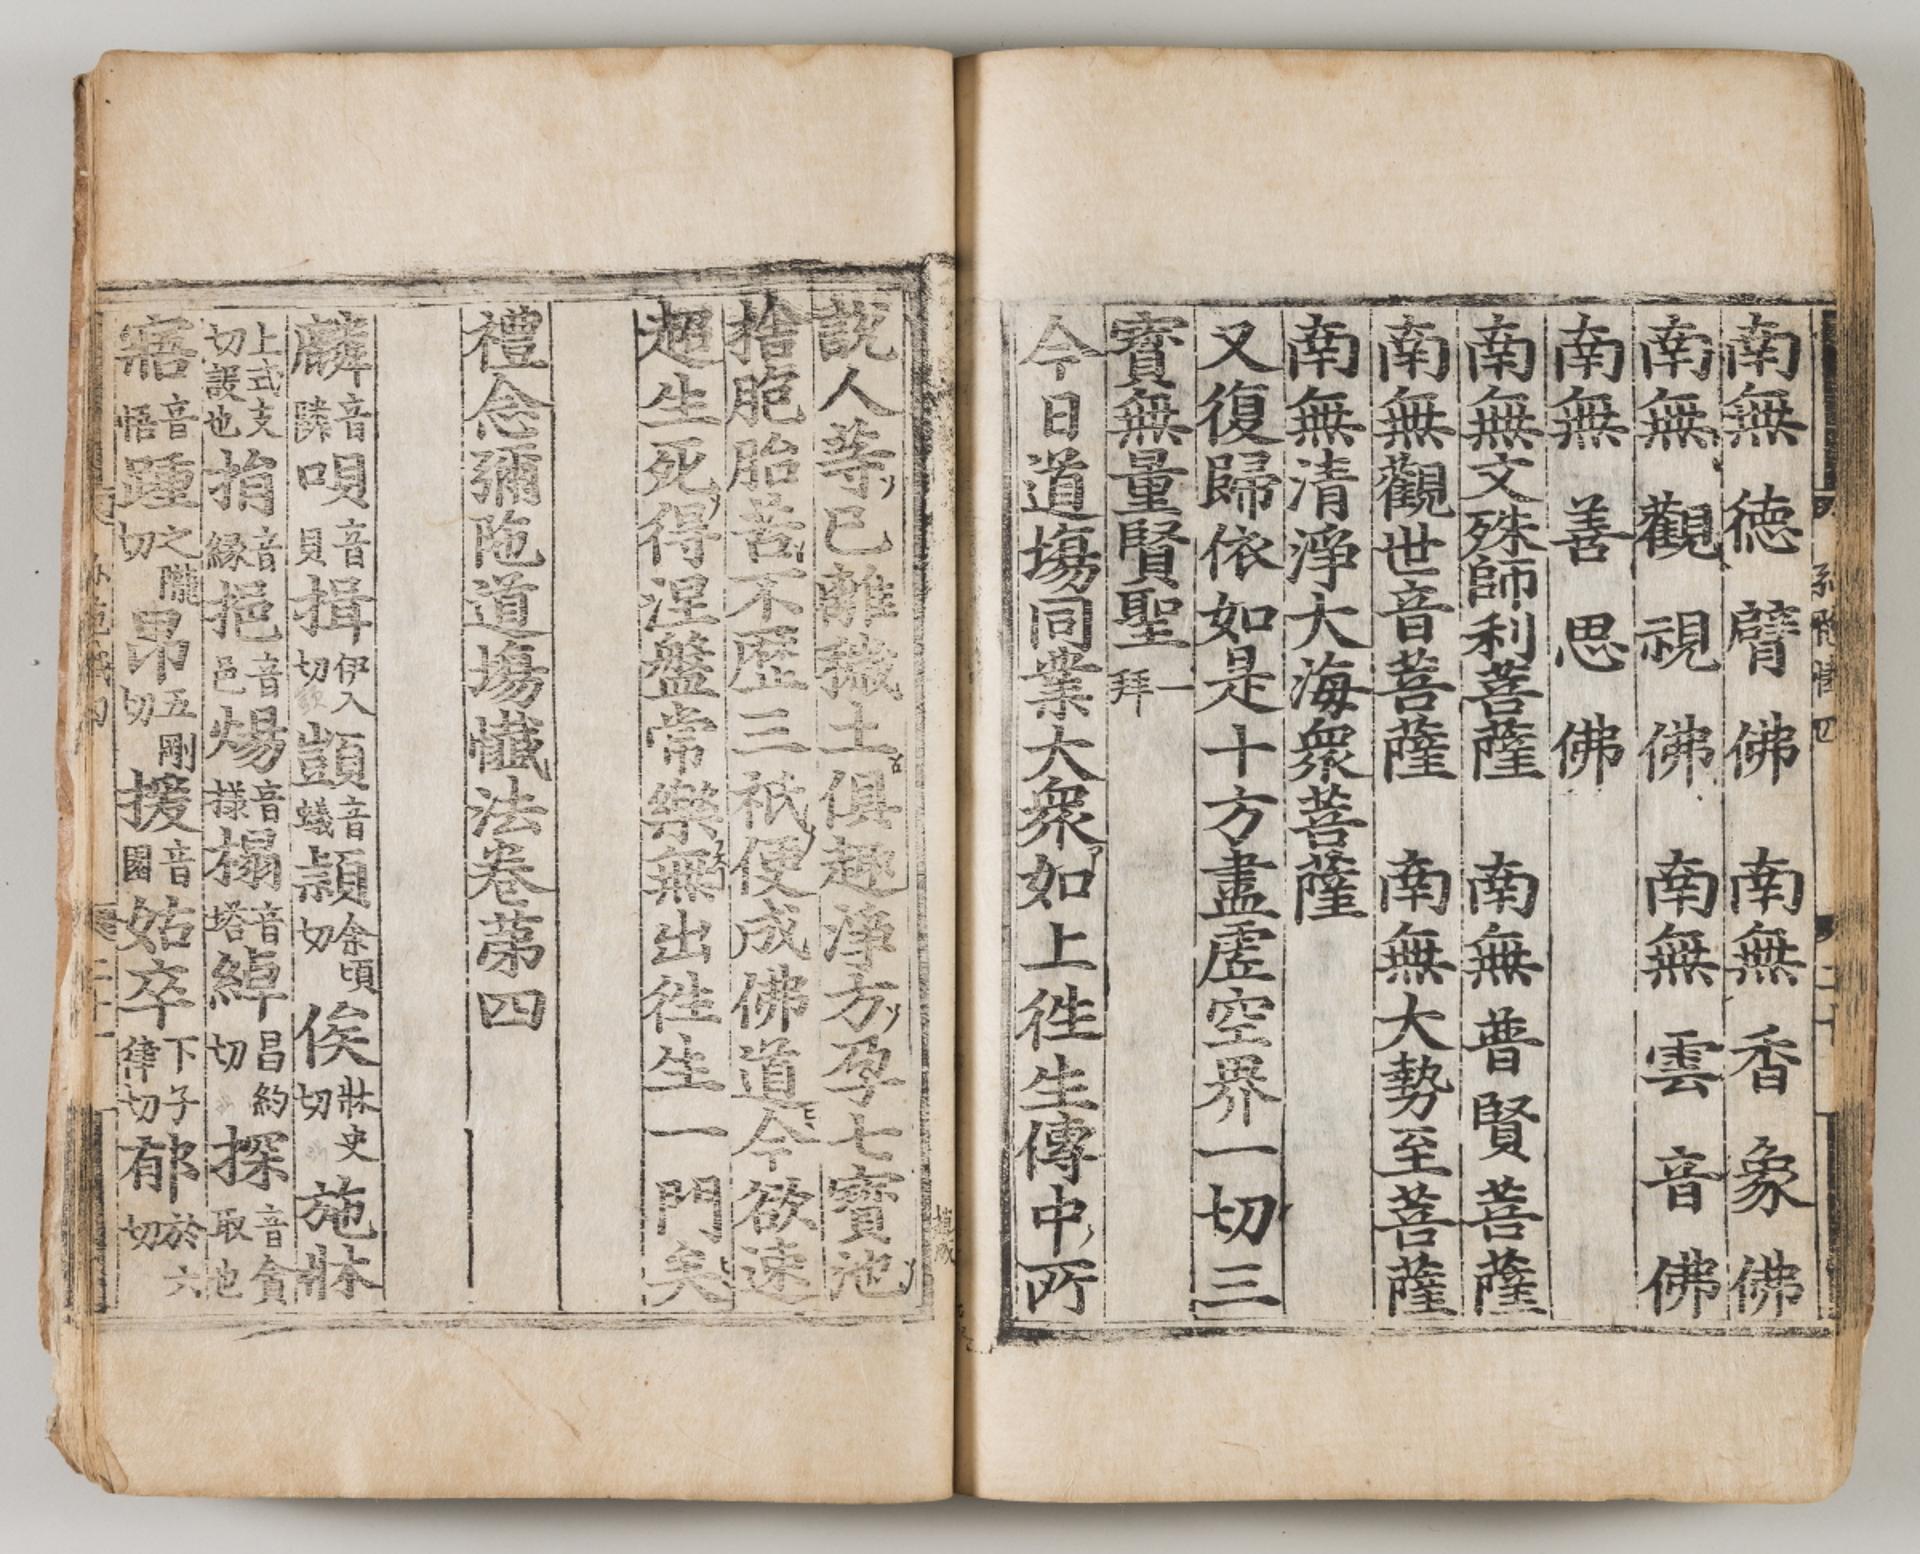 南無德臂佛 南無香象佛
南無觀視佛 南無雲音佛
南無善思佛
南無文殊師利菩薩 南無普賢菩薩
南無觀世音菩薩 南無大勢至菩薩
南無清淨大海衆菩薩
又復歸依如是十方盡虛空界一切三
寶無量賢聖 一拜
今日道場同業大衆如上徃生傳中所
說人等已離穢土俱趣淨方孕七寶池
捨胞胎苦不歷三祇便成佛道今欲速
超生死得涅盤常樂無出徃生一門矣
禮念彌陁道場懺法卷第四
麟音隣唄音貝揖伊入切顗音蟻潁余頃切俟牀史切施牀
上式支切設也捐音緣挹音邑煬音樣榻音塔綽昌約切探音貪取也
寤音悟踵之隴切昂五剛切援音園姑卒下子律切郁於六切